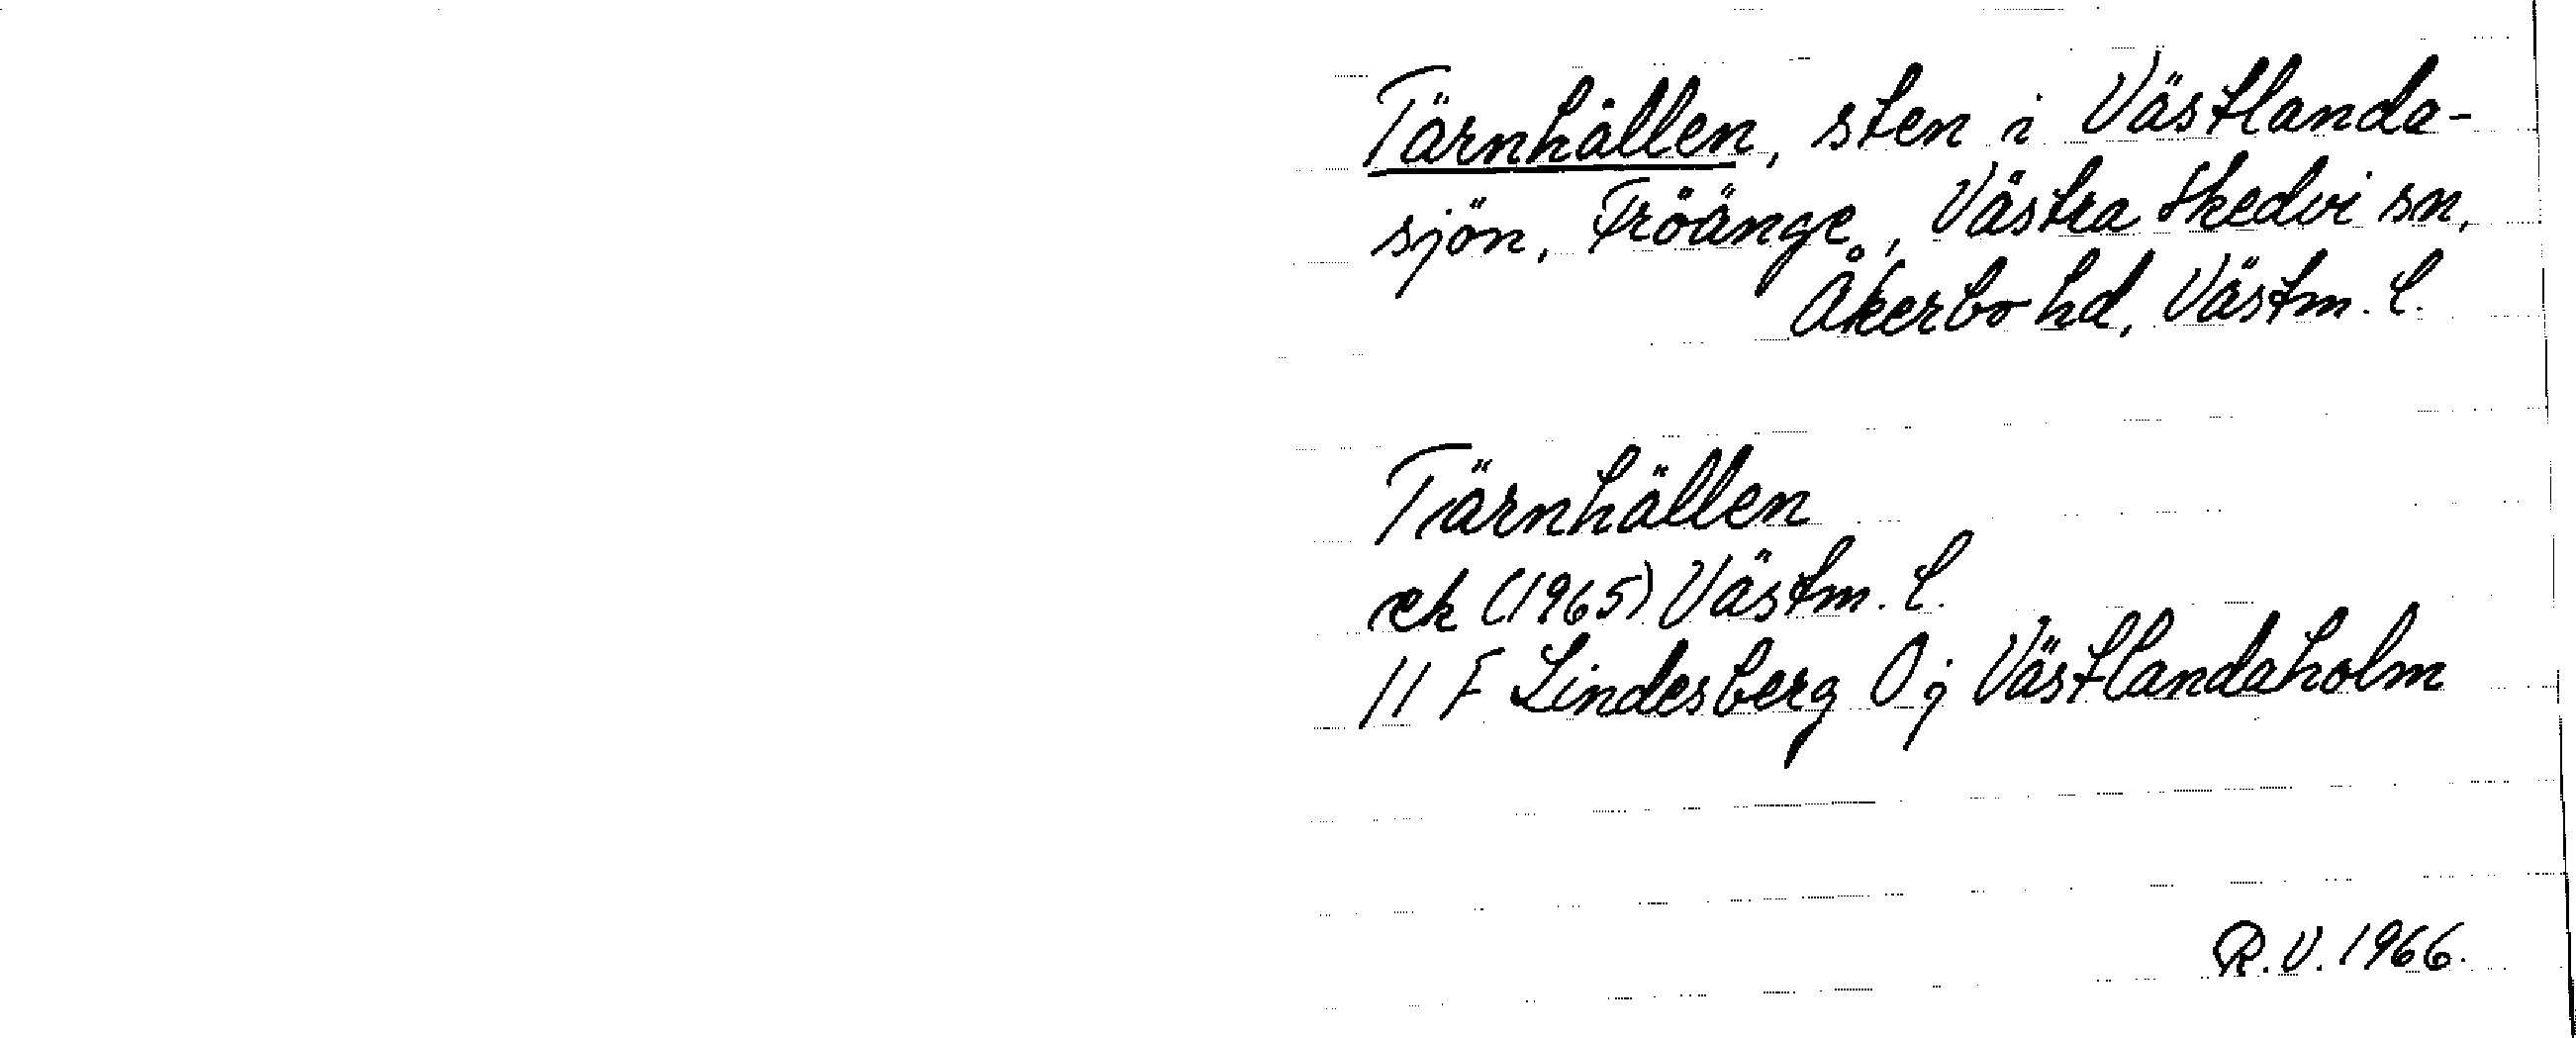 Tärnhällen, sten i Västlanda-
sjön, Fröänge, Västra Skedvi sn,
Åkerbo hd, Västm. l.
Tärnhällen
ek (1965) Västm. l.
11 F Lindesberg 0 j Västlandaholm
R.V. 1966.